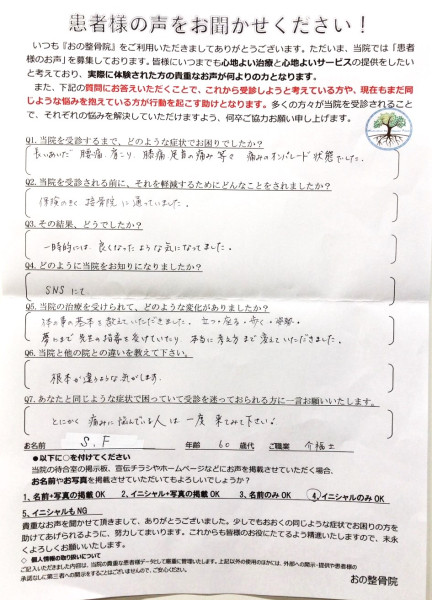 患者様の声をお聞かせください！
いつも『おの整骨院』をご利用いただきましてありがとうございます。ただいま、当院では「患者
様のお声」を募集しております。皆様にいつまでも心地よい治療と心地よいサービスの提供をしたい
と考えており、実際に体験された方の貴重なお声が何よりの力となります。
また、下記の質問にお答えいただくことで、これから受診しようと考えている方や、現在もまだ同
じような悩みを抱えている方が行動を起こす助けとなります。多くの方々が当院を受診されること
で、それぞれの悩みを解決していただけますよう、何卒ご協力お願い申し上げます。
Q1. 当院を受診するまで、どのような症状でお困りでしたか？
長いあいだ 腰痛 肩こり 膝痛 足首の痛み 等々 痛みのオンパレード状態でした。
Q2. 当院を受診される前に、それを軽減するためにどんなことをされましたか？
保険のきく 接骨院に通っていました。
Q3. その結果、どうでしたか？
一時的には 良くなったような気になってました。
Q4. どのように当院をお知りになりましたか？
SNSにて
Q5. 当院の治療を受けられて、どのような変化がありましたか？
体の事の基本を教えていただきました。立つ・座る・歩く・
先生の指導を受けていたり、本当に考え方まで変えていただきました。
Q6. 当院と他の院との違いを教えて下さい。
根本が違うような気がします。
Q7. あなたと同じような症状で困っていて受診を迷っておられる方に一言お願いいたします。
とにかく 痛みに悩んでいる人は 一度 来てみて下さい。
お名前 S.F 年齢 60 歳代 ご職業 介福士
●以下に○を付けてください
当院の待合室の掲示板、宣伝チラシやホームページなどにお声を掲載させていただく場合、
お名前やお写真を掲載させていただいてもよろしいでしょうか？
1、名前+写真の掲載 OK 2、イニシャル+写真の掲載 OK 3、名前のみ OK 4、イニシャルのみ OK
5、イニシャルも NG
貴重なお声を聞かせて頂きまして、ありがとうございました。少しでもおおくの同じような症状でお困りの方を
助けてあげられるように、努力してまいります。これからも皆様のお役にたてるよう精進いたしますので、末永
くよろしくお願いいたします。
◇ 個人情報の取り扱いについて
ご記入いただきました内容は、当院の貴重な患者様データ化して厳重に管理いたします。上記以外の使用のほかには、外部への開示・提供や患者様の
承諾なしに第三者への開示をすることはございませんので、ご安心ください。
おの整骨院